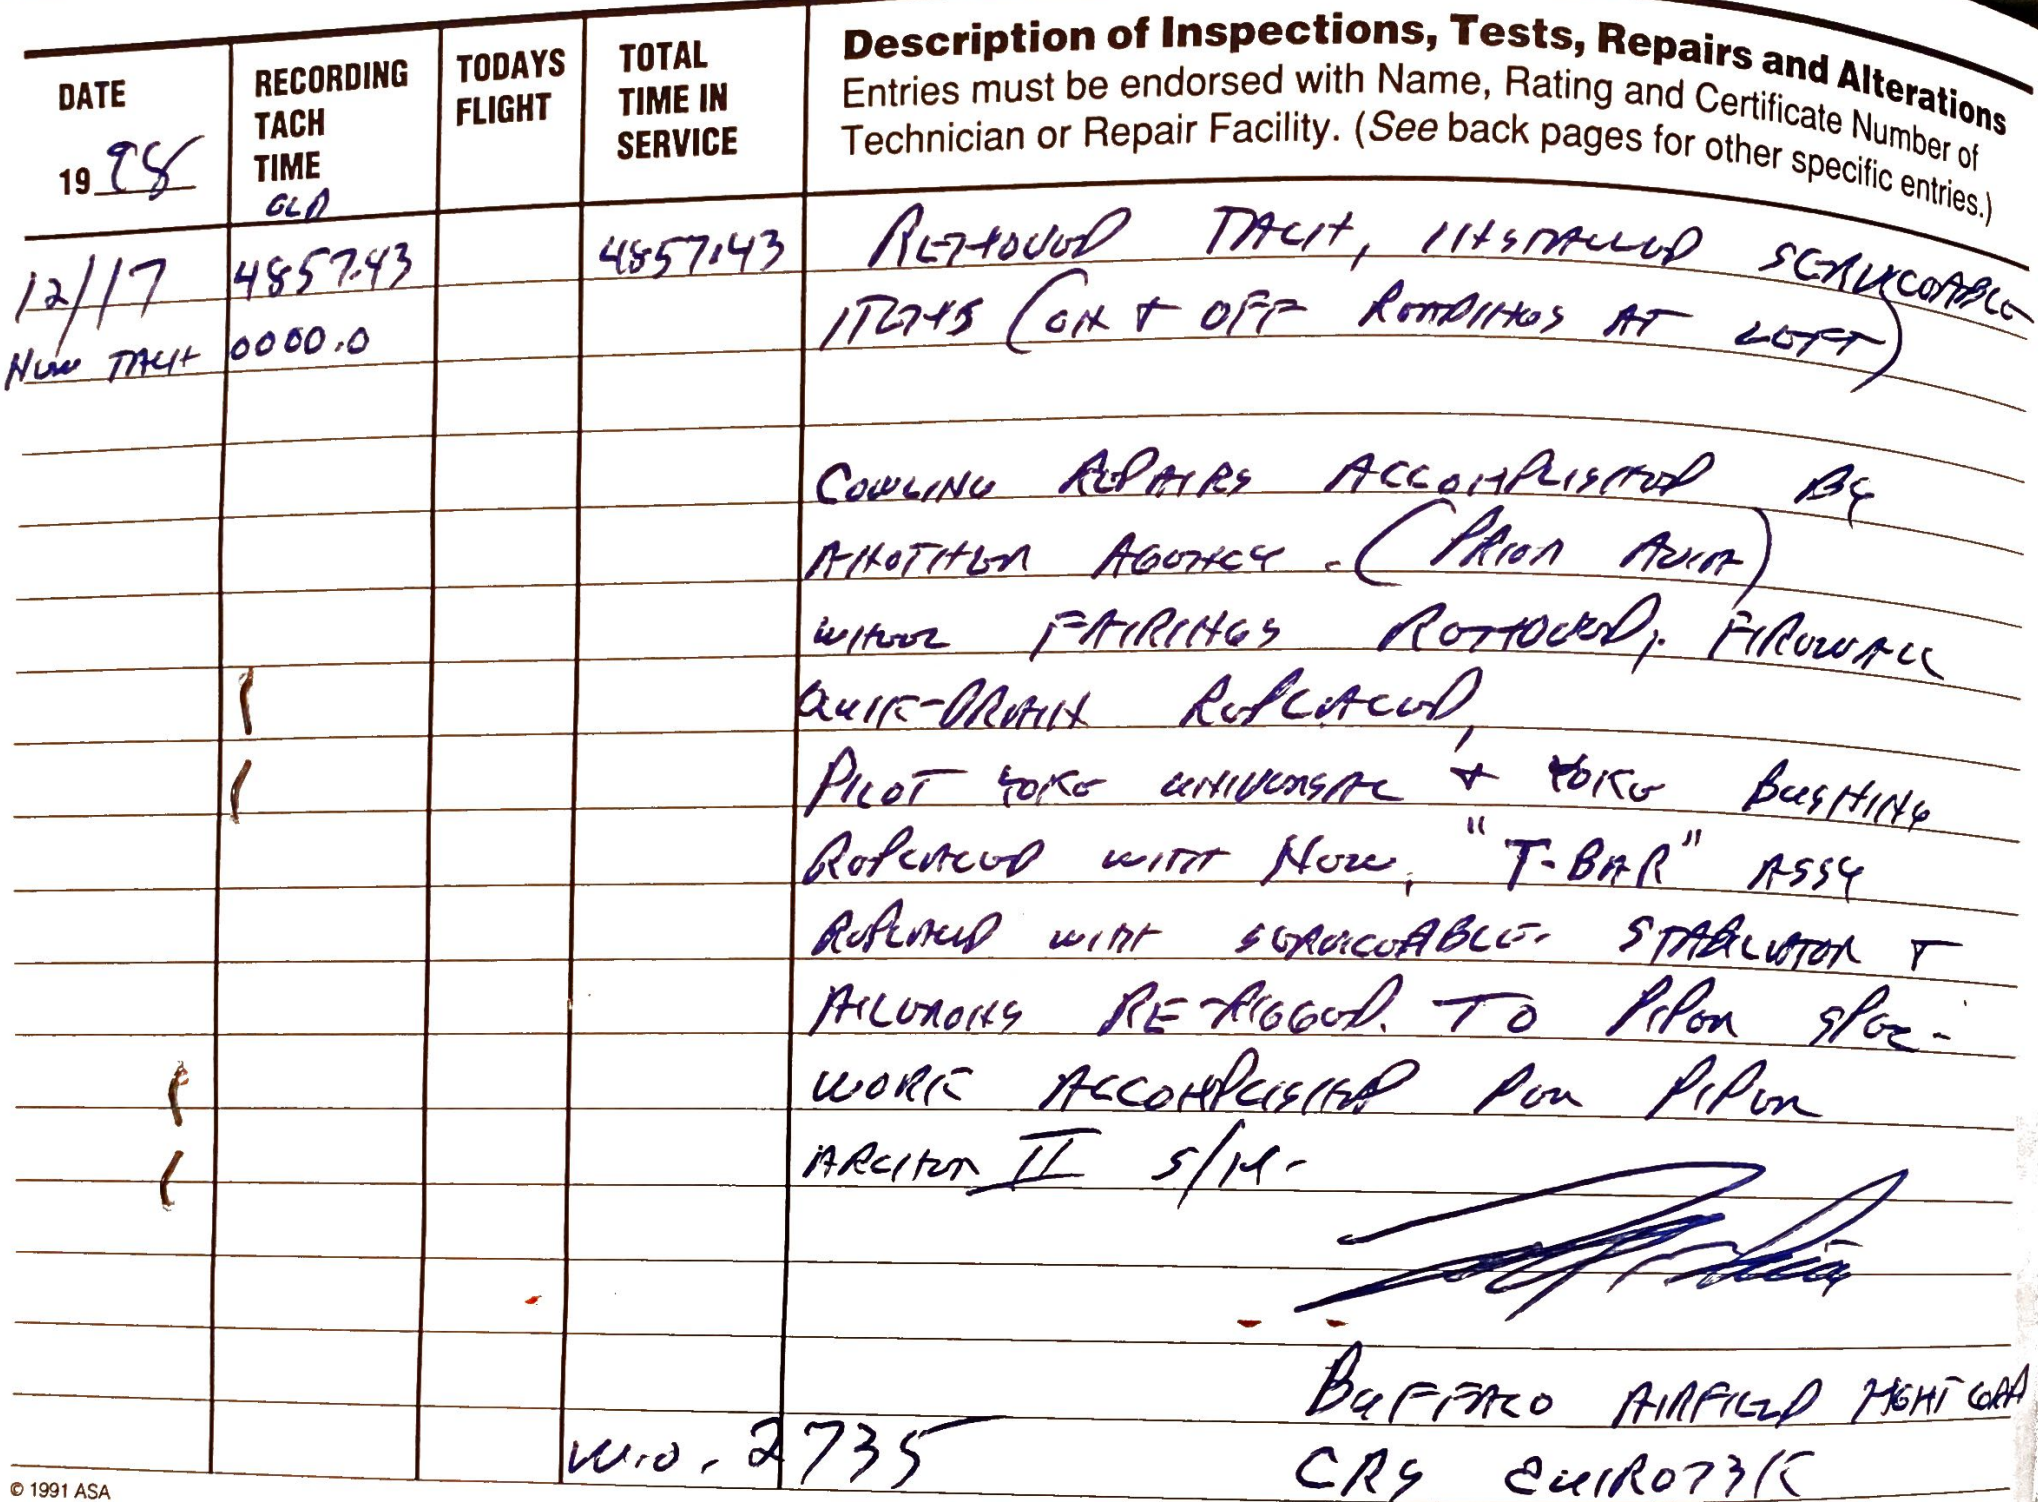 DATE
19 98
RECORDING
TACH
TIME
OLD
TODAYS
FLIGHT
TOTAL
TIME IN
SERVICE
Description of Inspections, Tests, Repairs and Alterations
Entries must be endorsed with Name, Rating and Certificate Number of
Technician or Repair Facility. (See back pages for other specific entries.)
12/17 4857.43 4857.43 REMOVED TACH, INSTALLED SERVICEABLE
NEW TACH 0000.0 ITEMS (ON + OFF READINGS AT LEFT)
COWLING REPAIRS ACCOMPLISHED BY
ANOTHER AGENCY. (PRIOR AVIA)
WHEEL FAIRINGS REMOVED, FIREWALL
QUIK-DRAIN REPLACED,
PILOT YOKE UNIVERSAL + YOKE BUSHING
REPLACED WITH NEW, "T-BAR" ASSY
REPLACED WITH SERVICEABLE. STABILATOR +
AILERONS RE-RIGGED. TO PIPER SPEC-
WORK ACCOMPLISHED PER PIPER
ARCHER II S/M.
BUFFALO AIRFIELD MGMT CORP
W.O. 2735 CRS EUIR073K
© 1991 ASA